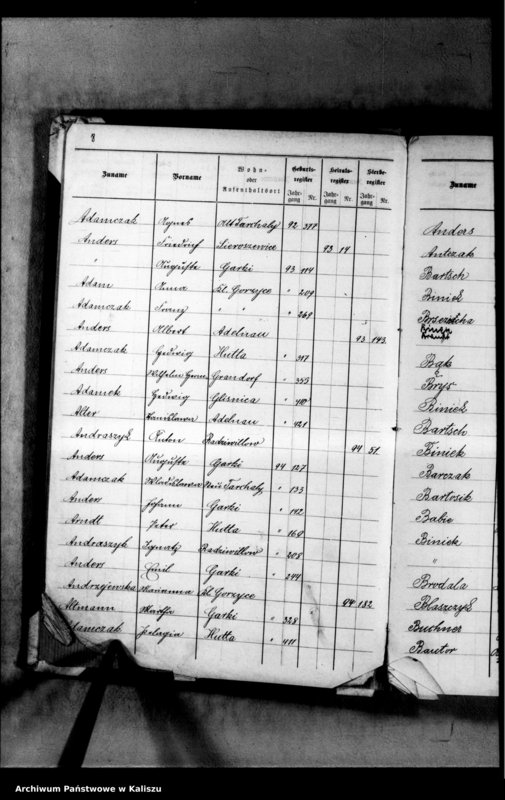 8
Zuname Vorname Wohn- oder Aufenthaltsort Geburts-register Heirats-register Sterbe-register
Jahr-gang Nr. Jahr-gang Nr. Jahr-gang Nr.
Adamczak Agnes Alt Tarchaly 92 377
Anders Friedrich Sieroszewice 93 14
" Auguste Garki 93 114
Adam Anna Kl. Gorzyce " 209
Adamczak Franz " " " 269
Anders Albert Adelnau 93 143
Adamczak Hedwig Hutta " 317
Anders Wilhelm Herm. Grandorf " 353
Adamek Hedwig Glisnica " 410
Alter Stanislawa Adelnau " 421
Andraszyk Anton Radziwillow 94 51
Anders Auguste Garki 94 127
Adamczak Wladislawa Neu Tarchaly " 133
Anders Johann Garki " 142
Arndt Peter Hutta " 169
Andraszyk Ignatz Radziwillow " 208
Anders Emil Garki " 244
Andrzejewska Marianna Kl. Gorzyce 94 182
Altmann Martha Garki " 328
Adamczak Pelagia Hutta " 411
Zuname
Anders
Antczak
Bartsch
Biniek
Brzezicha
Bąk
Bryś
Biniek
Bartsch
Biniek
Barczak
Bartosik
Babie
Biniek
"
Brodala
Blaszczyk
Buchner
Bautor
Archiwum Państwowe w Kaliszu